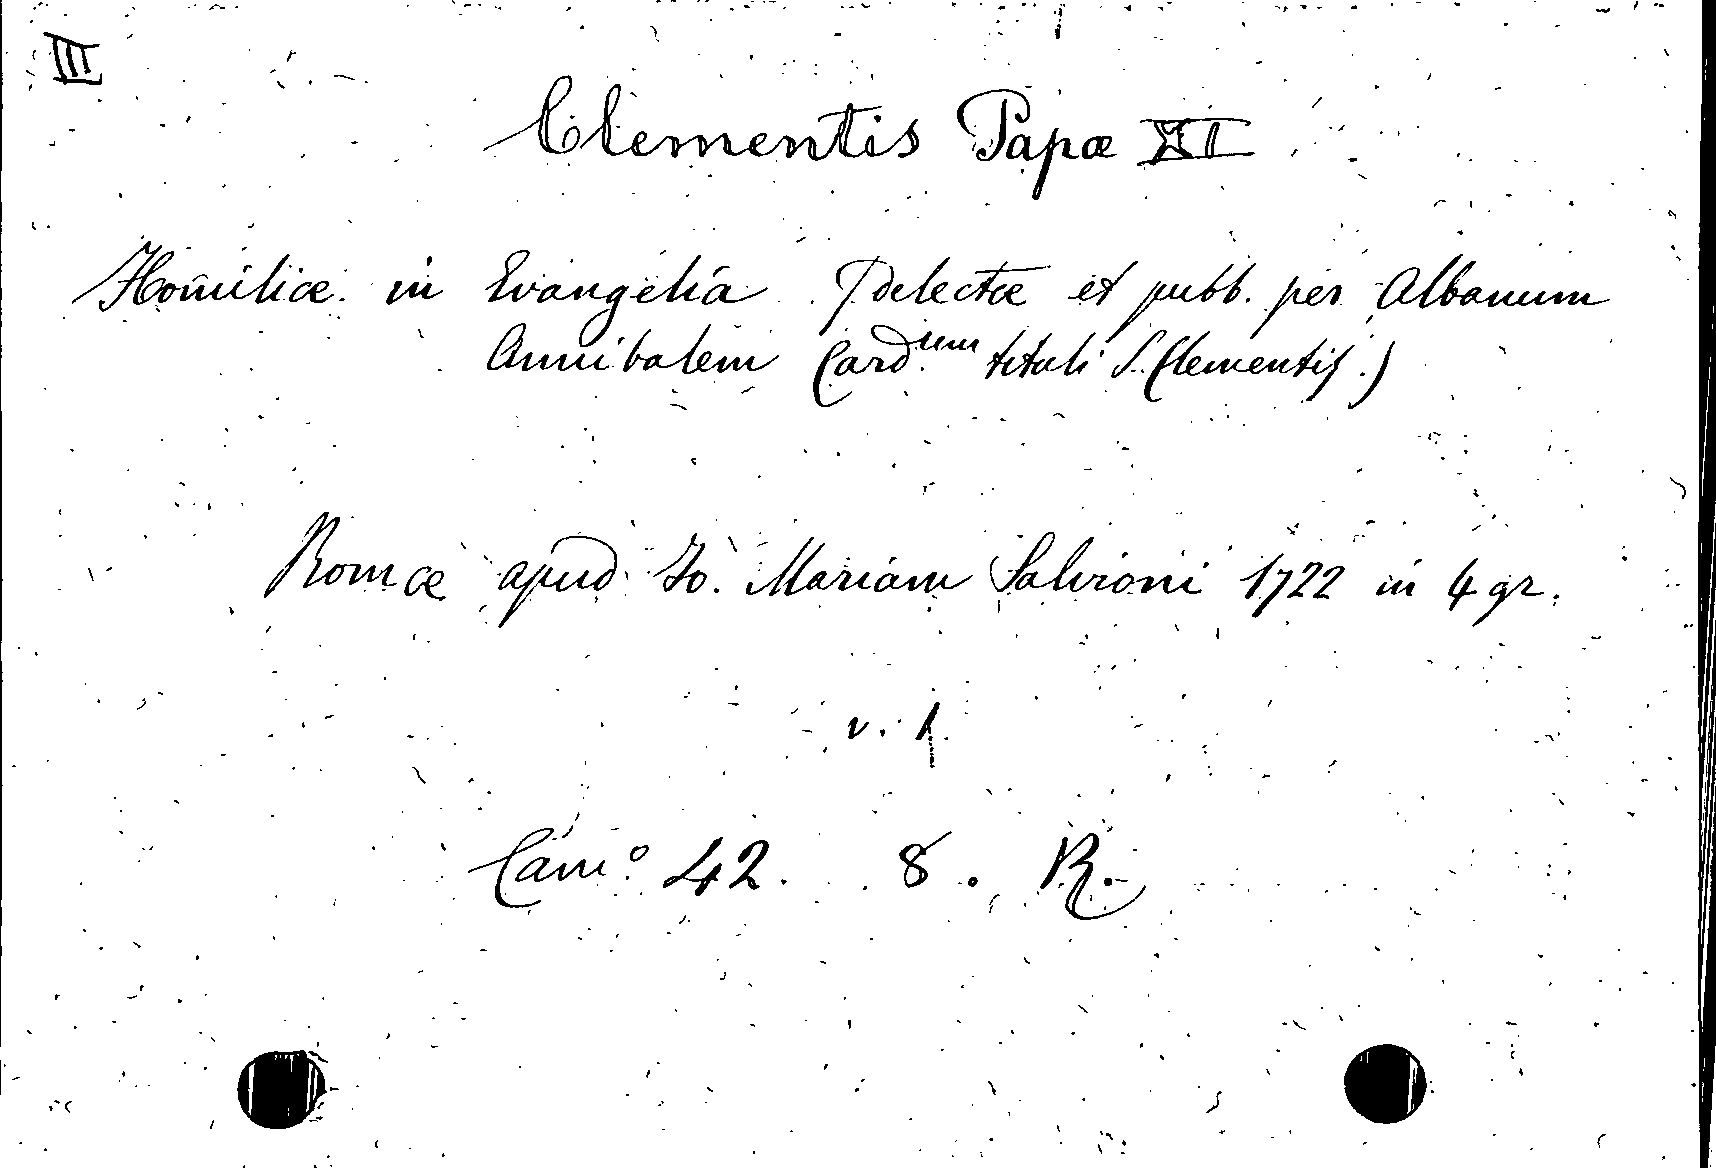 III
Clementis Papæ XI
Homiliæ in Evangelia (delectæ et pubb. per Albanum
Annibalem Card.um tituli S. Clementis.)
Romæ apud Jo. Mariam Salvioni 1722 in 4 gr.
v. 1.
Cam.º 42. 8. R.